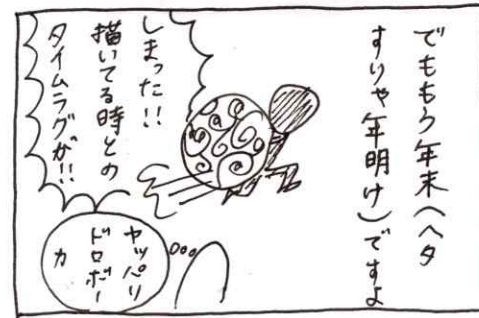 でももう年末(ヘタ
すりゃ年明け)ですよ
しまった!!
描いてる時との
タイムラグが!!
ヤッパリ
ドロボー
カ